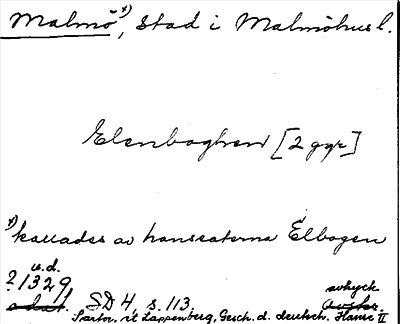 Malmö x), stad i Malmöhus l.
Elenboghen [2 ggr]
x) kallades av hanseaterna Elbogen
u.d.
? 1329, SD 4, s. 113. avtryck
Sartor. Lappenberg, Gesch. d. deutsch. Hanse II